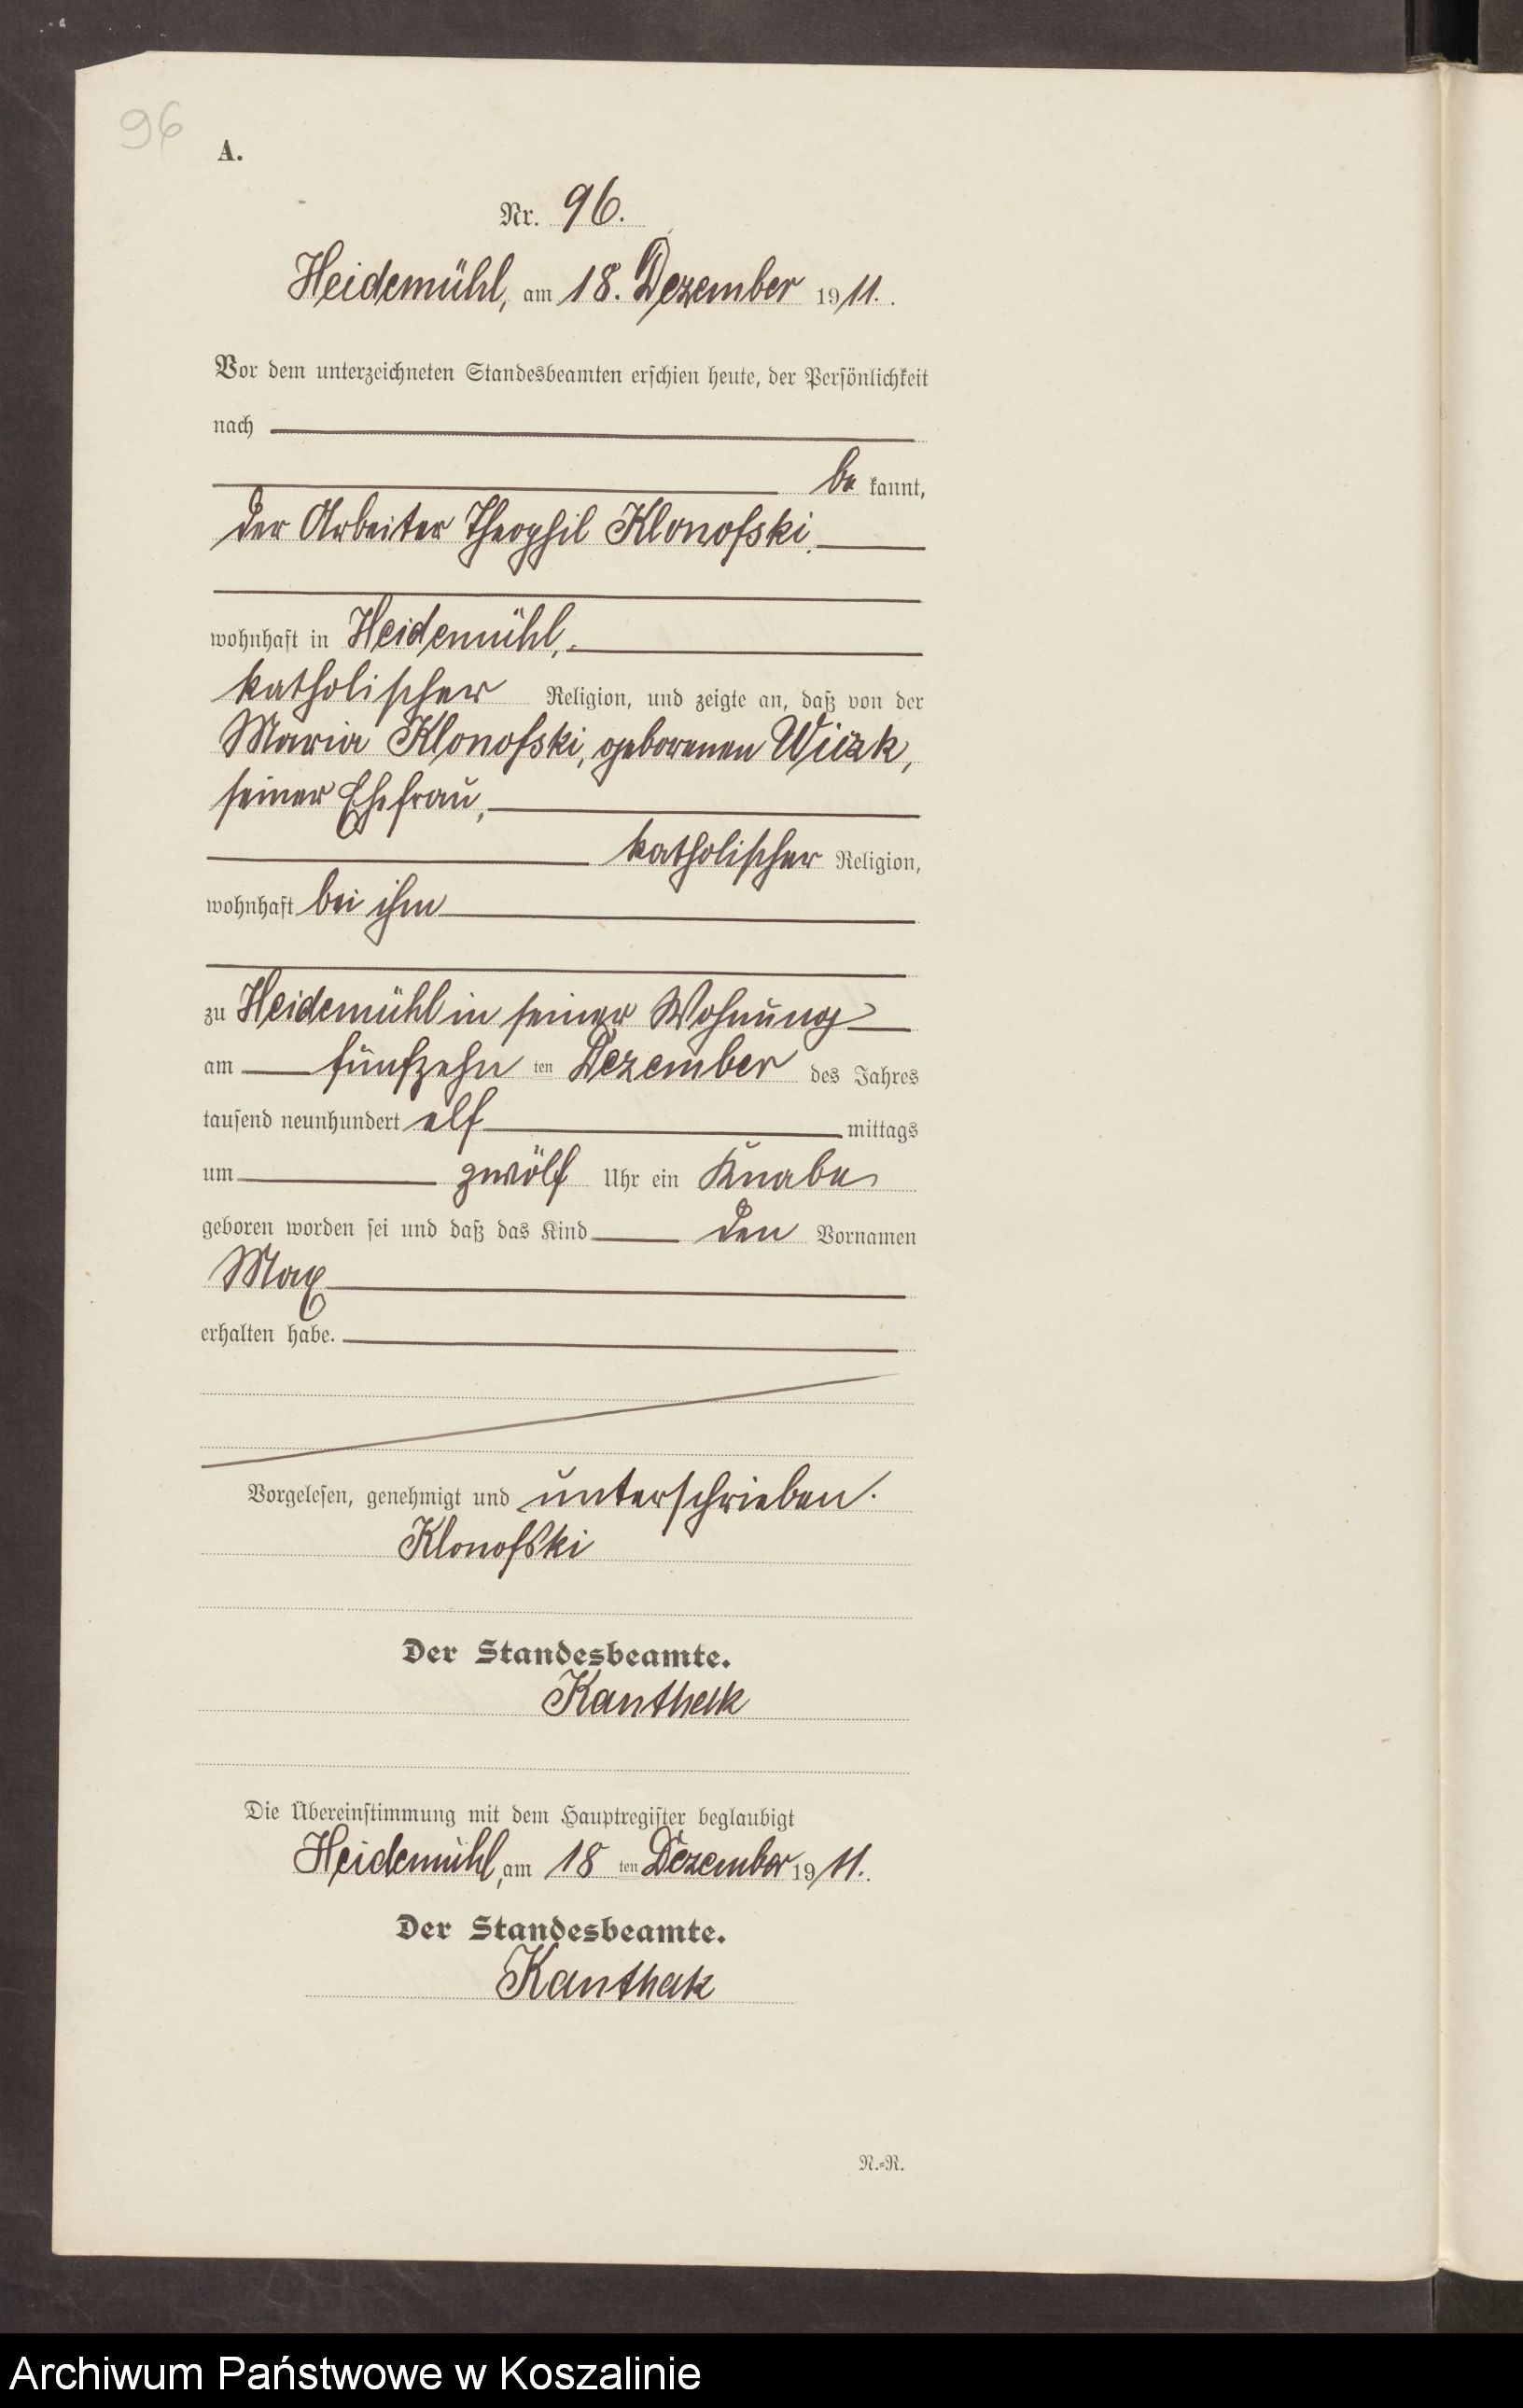 96
A.
Nr. 96.
Heidemühl, am 18. Dezember 1911.
Vor dem unterzeichneten Standesbeamten erschien heute, der Persönlichkeit
nach
be kannt,
der Arbeiter Theophil Klonofski,
wohnhaft in Heidemühl,
katholischer Religion, und zeigte an, daß von der
Maria Klonofski, geborenen
seiner Ehefrau,
katholischer Religion,
wohnhaft bei ihm
zu Heidemühl in seiner Wohnung
am fünfzehn ten Dezember des Jahres
tausend neunhundert elf mittags
um zwölf Uhr ein Knabe
geboren worden sei und daß das Kind den Vornamen
Max
erhalten habe.
Vorgelesen, genehmigt und unterschrieben.
Klonofski
Der Standesbeamte.
Kanthak
Die Übereinstimmung mit dem Hauptregister beglaubigt
Heidemühl, am 18 ten Dezember 1911.
Der Standesbeamte.
Kanthak
N.=R.
Archiwum Państwowe w Koszalinie